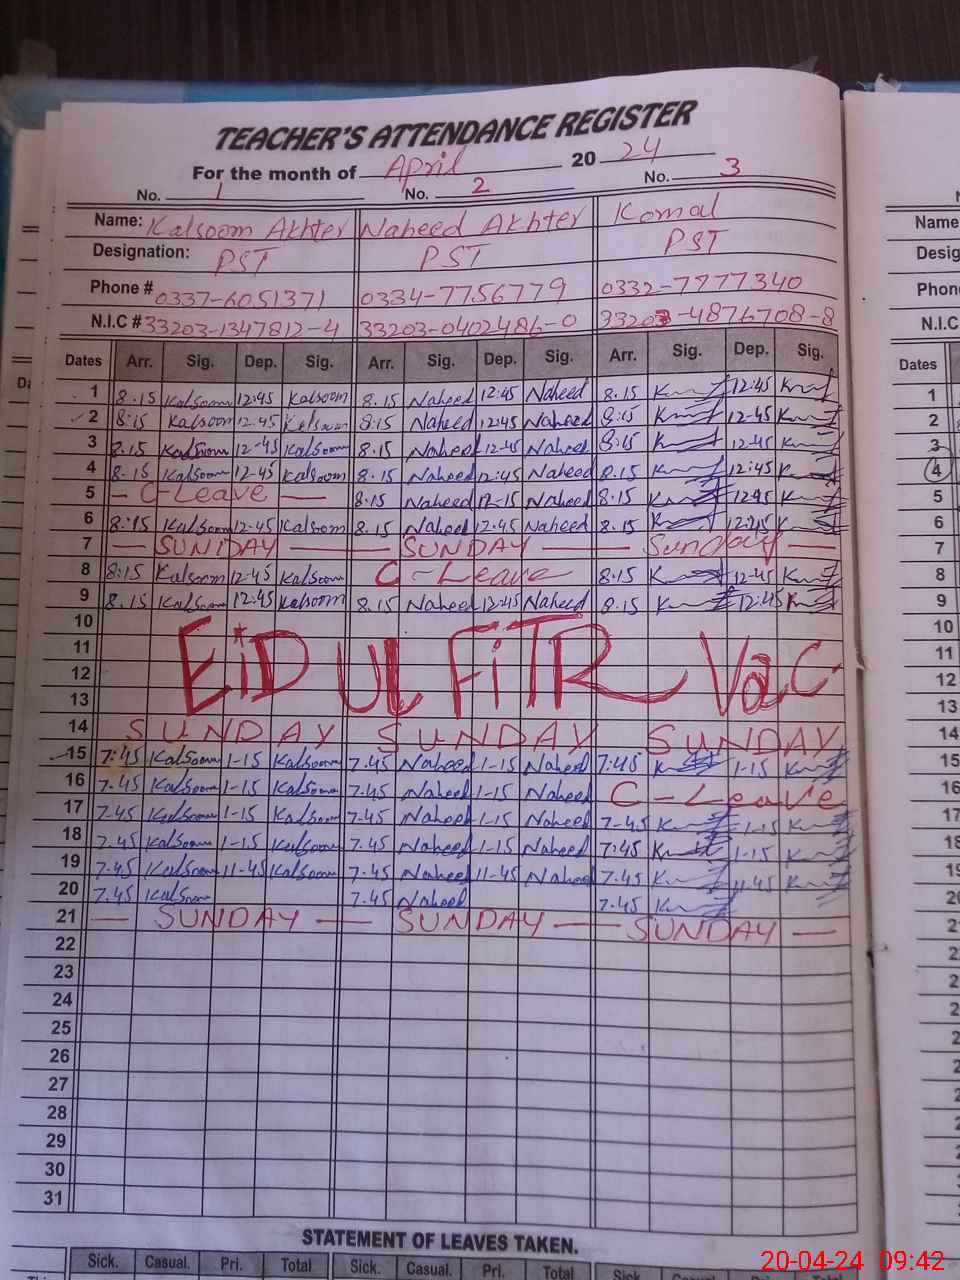 TEACHER'S ATTENDANCE REGISTER
For the month of April 2024
No. 1 No. 2 No. 3
Name: Kalsoom Akhter Naheed Akhter Komal
Designation: PST PST PST
Phone # 0337-6051371 0334-7756779 0332-7977340
N.I.C # 33203-1347812-4 33203-0402486-0 33203-4876708-8
Dates Arr. Sig. Dep. Sig. Arr. Sig. Dep. Sig. Arr. Sig. Dep. Sig.
1 8.15 Kalsoom 12:45 Kalsoom 8.15 Naheed 12:45 Naheed 8.15 12:45
2 8:15 Kalsoom 12.45 Kalsoom 8:15 Naheed 12.45 Naheed 8:15 12-45
3 8.15 Kalsoom 12-45 Kalsoom 8.15 Naheed 12-45 Naheed 8:15 12-45
4 8.15 Kalsoom 12-45 Kalsoom 8.15 Naheed 12:45 Naheed 8.15 12:45
5 — C-Leave — 8:15 Naheed 12-15 Naheed 8.15 12:45
6 8:15 Kalsoom 12-45 Kalsoom 8.15 Naheed 12:45 Naheed 8.15 12:45
7 — SUNDAY — — SUNDAY — Sunday —
8 8:15 Kalsoom 12-45 Kalsoom C-Leave 8:15 12-45
9 8.15 Kalsoom 12:45 Kalsoom 8.15 Naheed 12:45 Naheed 8.15 12:45
10
11 EiD UL FiTR Vac
12
13
14 SUNDAY SUNDAY SUNDAY
15 7:45 Kalsoom 1-15 Kalsoom 7.45 Naheed 1-15 Naheed 7:45 1-15
16 7.45 Kalsoom 1-15 Kalsoom 7.45 Naheed 1-15 Naheed C-Leave
17 7-45 Kalsoom 1-15 Kalsoom 7-45 Naheed 1-15 Naheed 7-45 1-15
18 7.45 Kalsoom 1-15 Kalsoom 7.45 Naheed 1-15 Naheed 7:45 1-15
19 7.45 Kalsoom 11-45 Kalsoom 7.45 Naheed 11-45 Naheed 7.45 11.45
20 7.45 Kalsoom 7.45 Naheed 7.45
21 — SUNDAY — SUNDAY — SUNDAY —
22
23
24
25
26
27
28
29
30
31
STATEMENT OF LEAVES TAKEN.
Sick. Casual. Pri. Total Sick. Casual. Pri. Total Sick.
Name
Phon
N.I.C
Dates
1
2
3
4
5
6
7
8
9
10
11
12
13
14
15
16
17
18
19
20-04-24 09:42